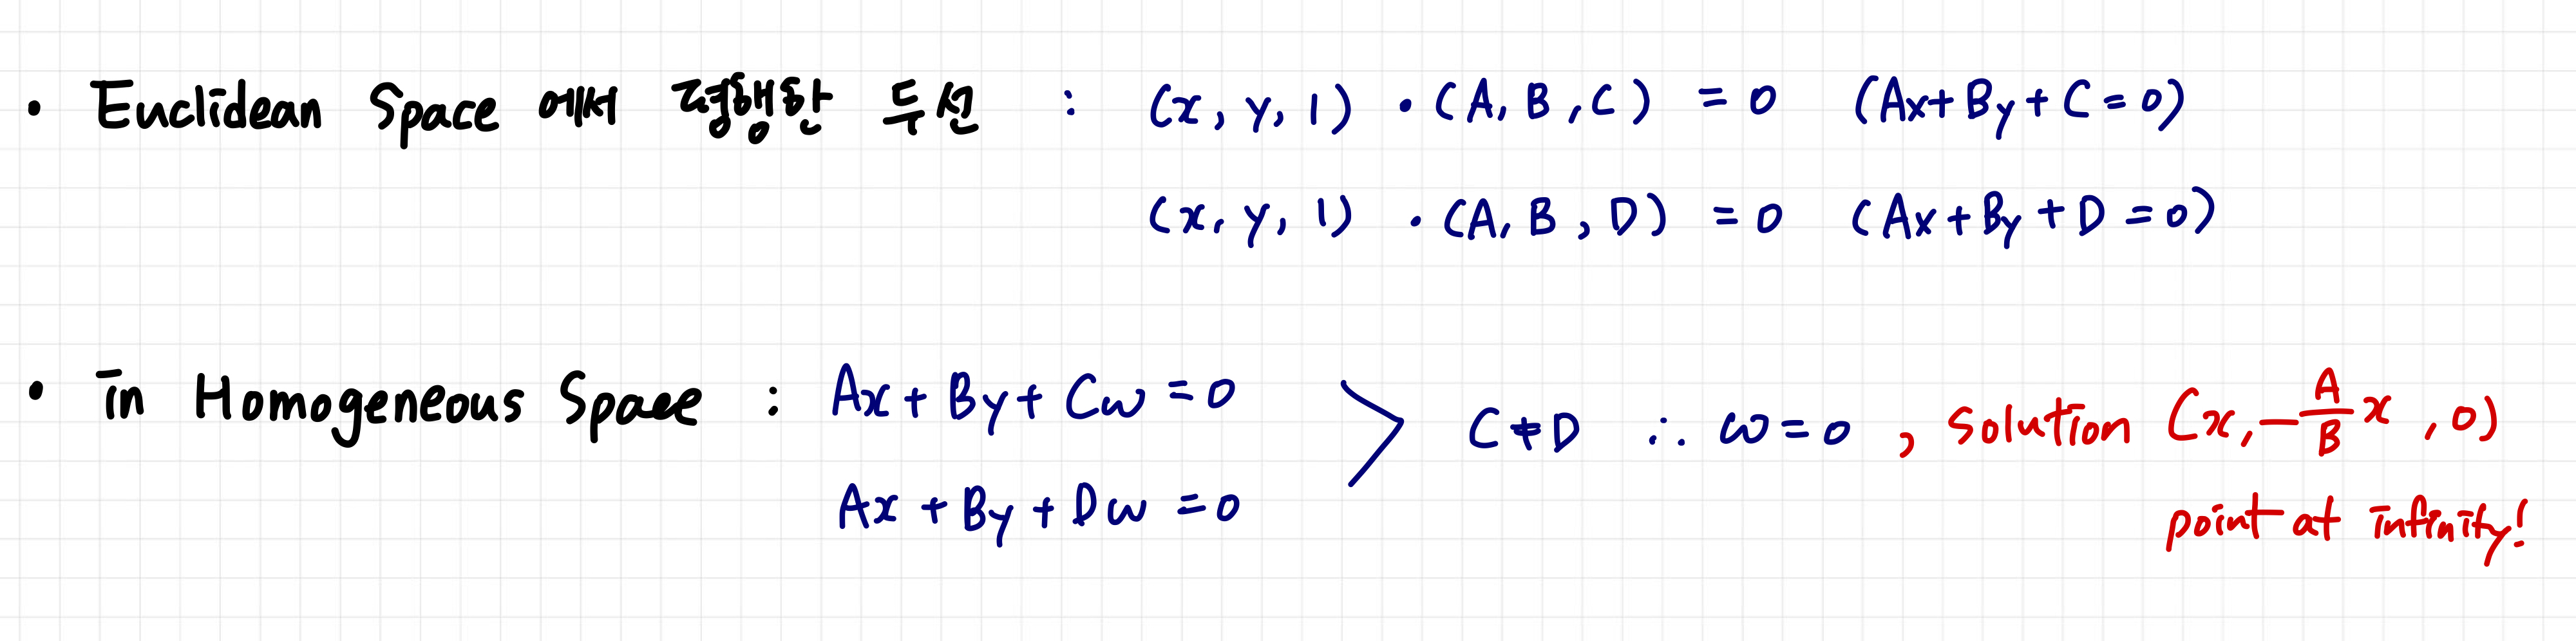 • Euclidean Space 에서 평행한 두 선 : (x, y, 1) • (A, B, C) = 0 (Ax+By+C=0)
(x, y, 1) • (A, B, D) = 0 (Ax+By+D=0)
• in Homogeneous Space : Ax + By + Cω = 0
Ax + By + Dω = 0
C≠D ∴ ω=0 , solution (x, -A/B x, 0)
point at infinity!